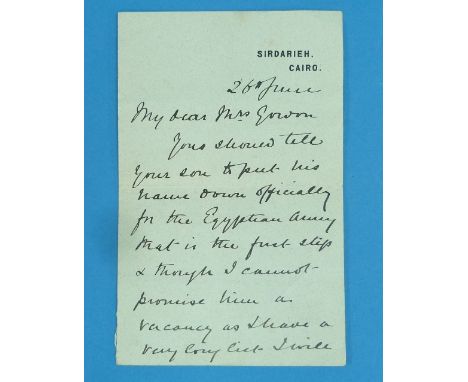 SIRDARIEH.
CAIRO.
26th June
My dear Mrs Gordon
You should tell
your son to put his
name down officially
for the Egyptian Army
that is the first step
& though I cannot
promise him a
vacancy as I have a
very long list I will